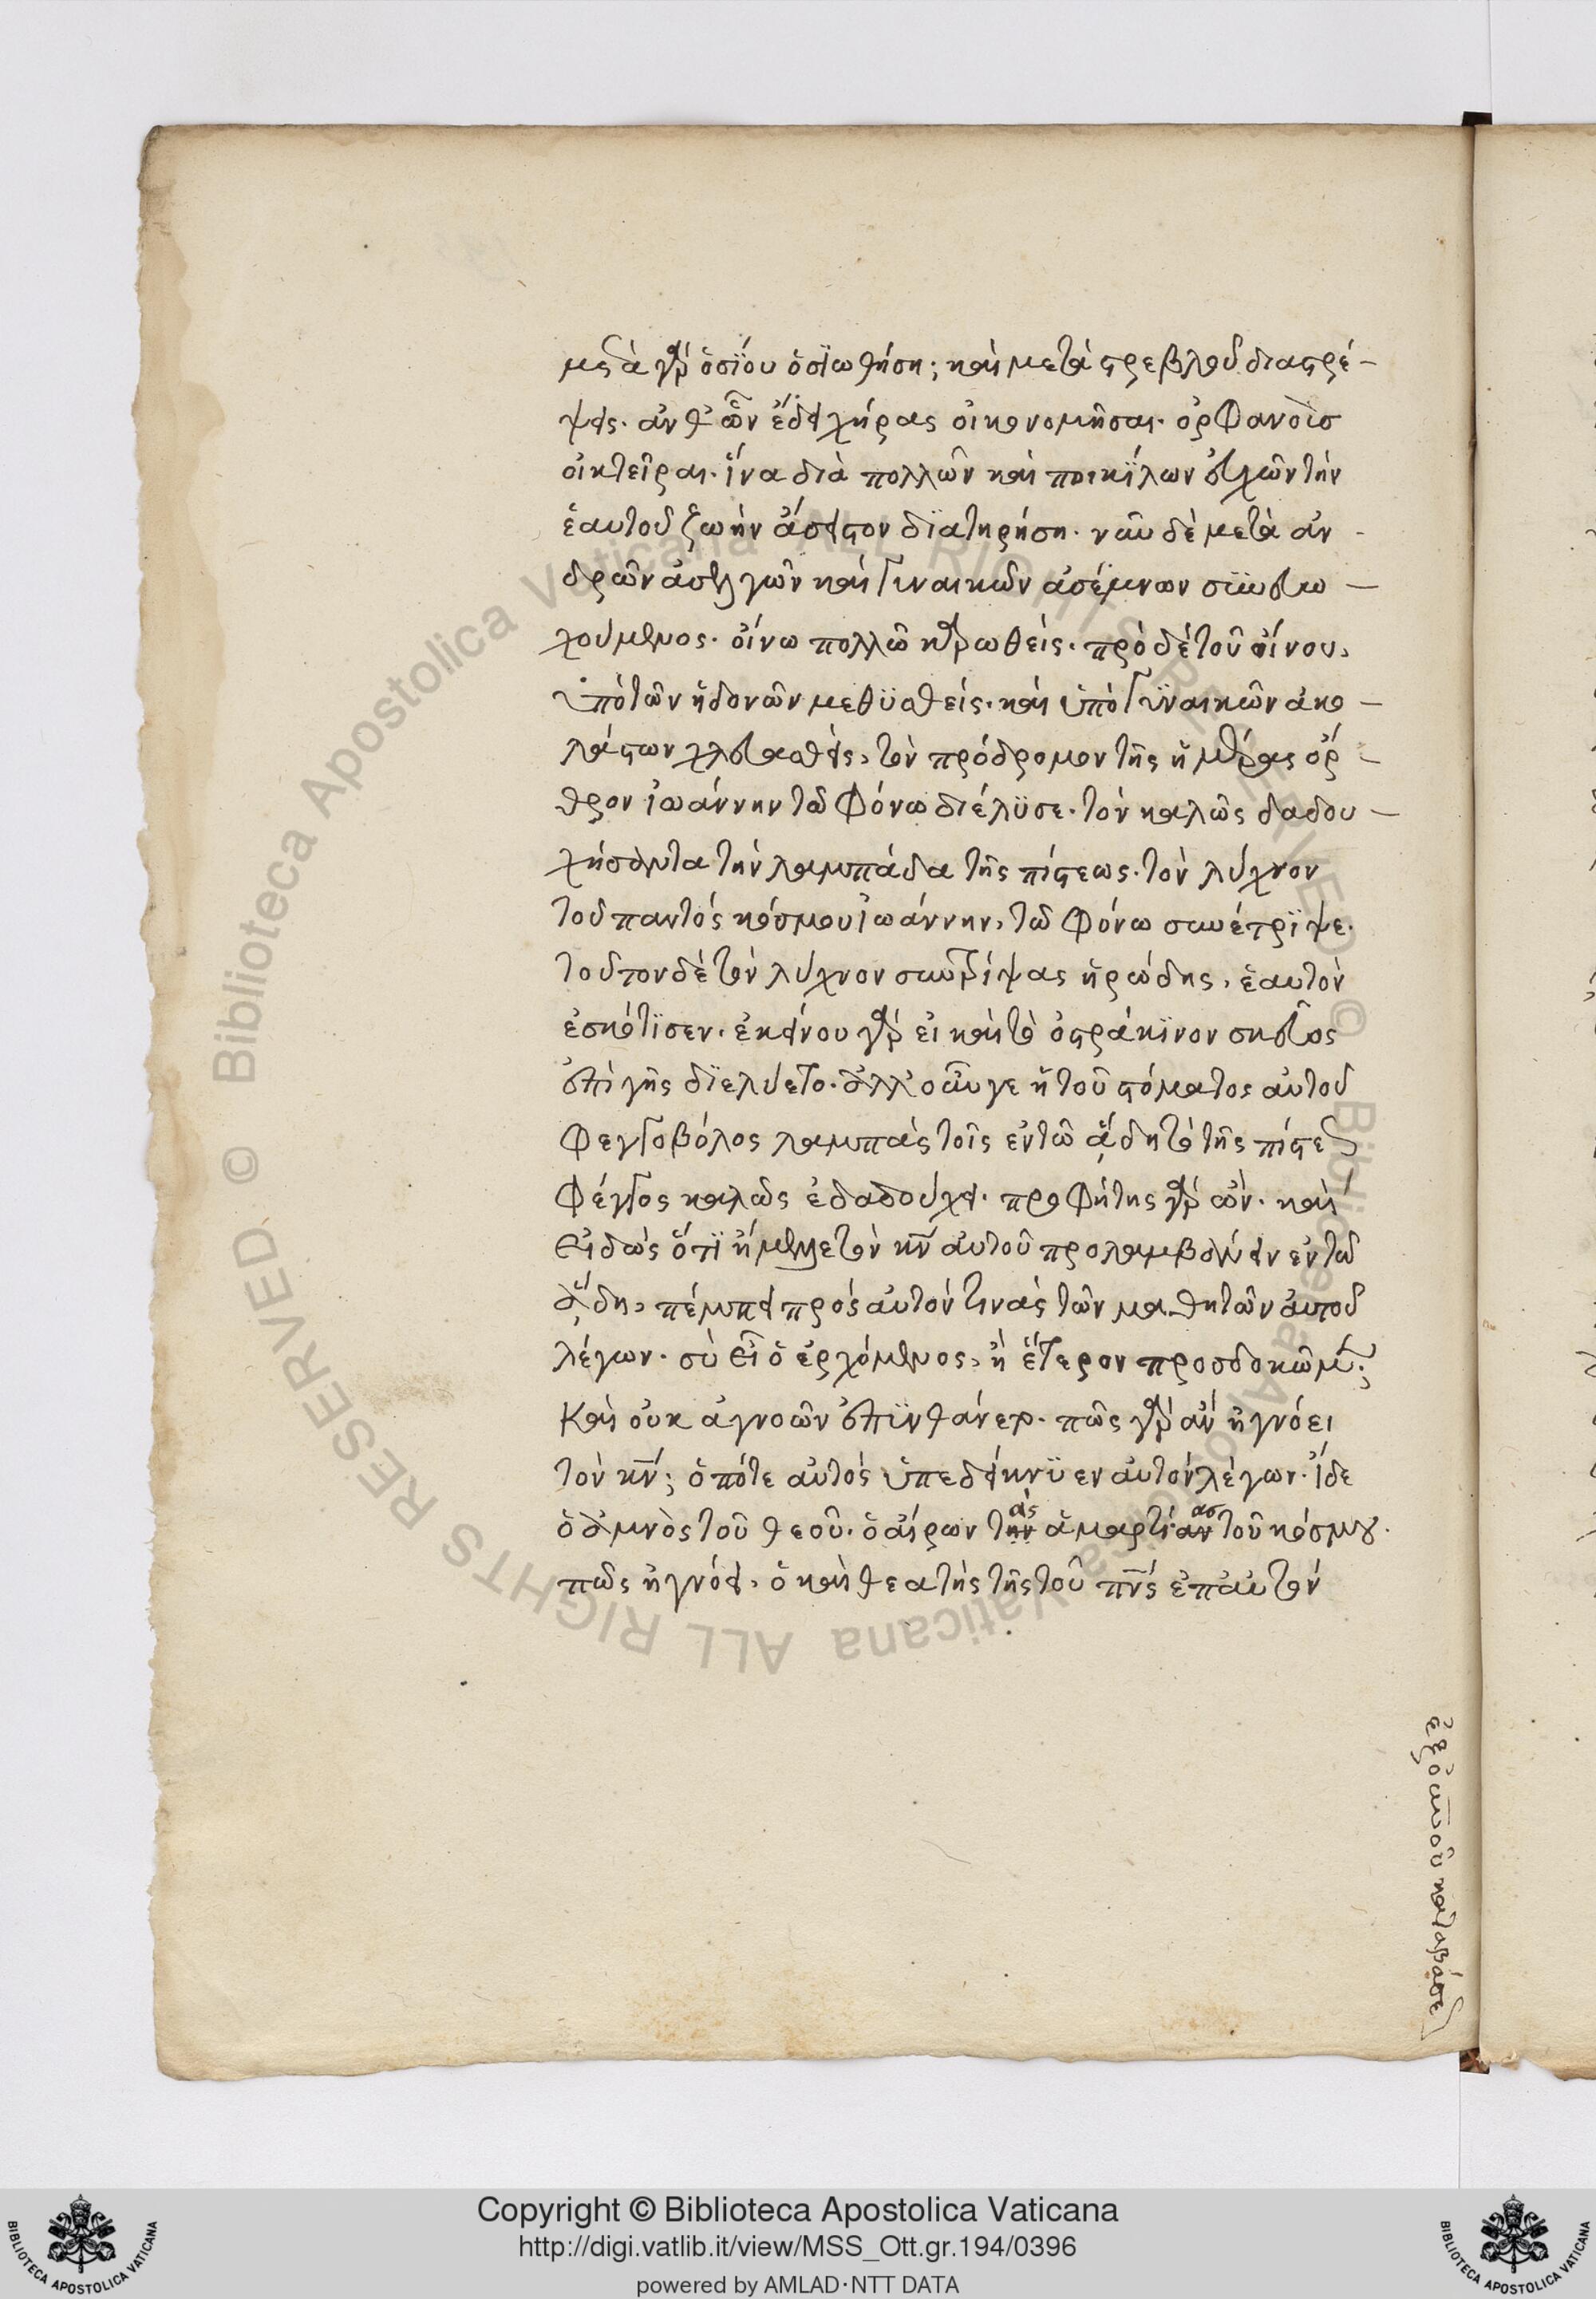 μετὰ γὰρ ὁσΐου ὁσϊωθήση; καὶ μετὰ στρεβλοῦ διαστρέ-
ψεις. ἀνθ' ὧν ἔδει χήρας οἰκονομῆσαι. ὀρφανοὶσ
οἰκτεῖραι. ἵνα διὰ πολλῶν καὶ ποικΐλων εὐχῶν τὴν
ἑαυτοῦ ζωὴν ἄσειστον δϊατηρήση. νῦν δὲ μετὰ ἀν-
δρῶν ἀσελγῶν καὶ γυναικῶν ἀσέμνων συνευω-
χούμενος. οἴνω πολλῶ καρωθείς. πρὸ δὲ τοῦ οἴνου,
ὑπὸ τῶν ἡδονῶν μεθϋσθείς. καὶ ὑπὸ γυναικῶν ἀκο-
λάστων χλευασθεὶς, τὸν πρόδρομον τῆς ἡμέρας ὄρ-
θρον ἰωάννην τῶ φόνω διέλϋσε. τὸν καλῶς δαδου-
χήσαντα τὴν λαμπάδα τῆς πίστεως. τὸν λύχνον
τοῦ παντὸς κόσμου ἰωάννην, τῶ φόνω συνέτρϊψε.
τοῦτον δὲ τὸν λύχνον συντρίψας ἡρώδης, ἑαυτὸν
ἐσκότϊσεν. ἐκείνου γὰρ εἰ καὶ τὸ ὀστράκϊνον σκεῦος
ἐπὶ γῆς δϊελύετο. ἀλλ' οὖν γε ἡ τοῦ στόματος αὐτοῦ
φεγγοβόλος λαμπὰς τοῖς ἐν τῶ ἅδη τὸ τῆς πίστεως
φέγγος καλῶς ἐδαδούχει. προφήτης γὰρ ὤν. καὶ
εἰδὼς ὅτϊ ἤμελλε τὸν κν̅ αὐτοῦ προλαμβάνειν ἐν τῶ
ἅδη, πέμπει πρὸς αὐτόν τινὰς τῶν μαθητῶν αὐτοῦ
λέγων. σὺ εἶ ὁ ἐρχόμενος, ἢ ἕτερον προσδοκῶμεν;
Καὶ οὐκ ἀγνοῶν ἐπϋνθάνετο. πῶς γὰρ ἂν ἠγνόει
τὸν κν̅; ὁπότε αὐτὸς ὑπεδείκνϋεν αὐτὸν λέγων. ἴδε
ὁ ἀμνὸς τοῦ θεοῦ. ὁ αἴρων τὰς ἁμαρτίασ τοῦ κόσμου.
πῶς ἠγνόει, ὁ καὶ θεατὴς τῆς τοῦ πνς̅ ἐπ' αὐτὸν
ἐξ οὐνοῦ καταβάσεως
Copyright © Biblioteca Apostolica Vaticana
http://digi.vatlib.it/view/MSS_Ott.gr.194/0396
powered by AMLAD·NTT DATA